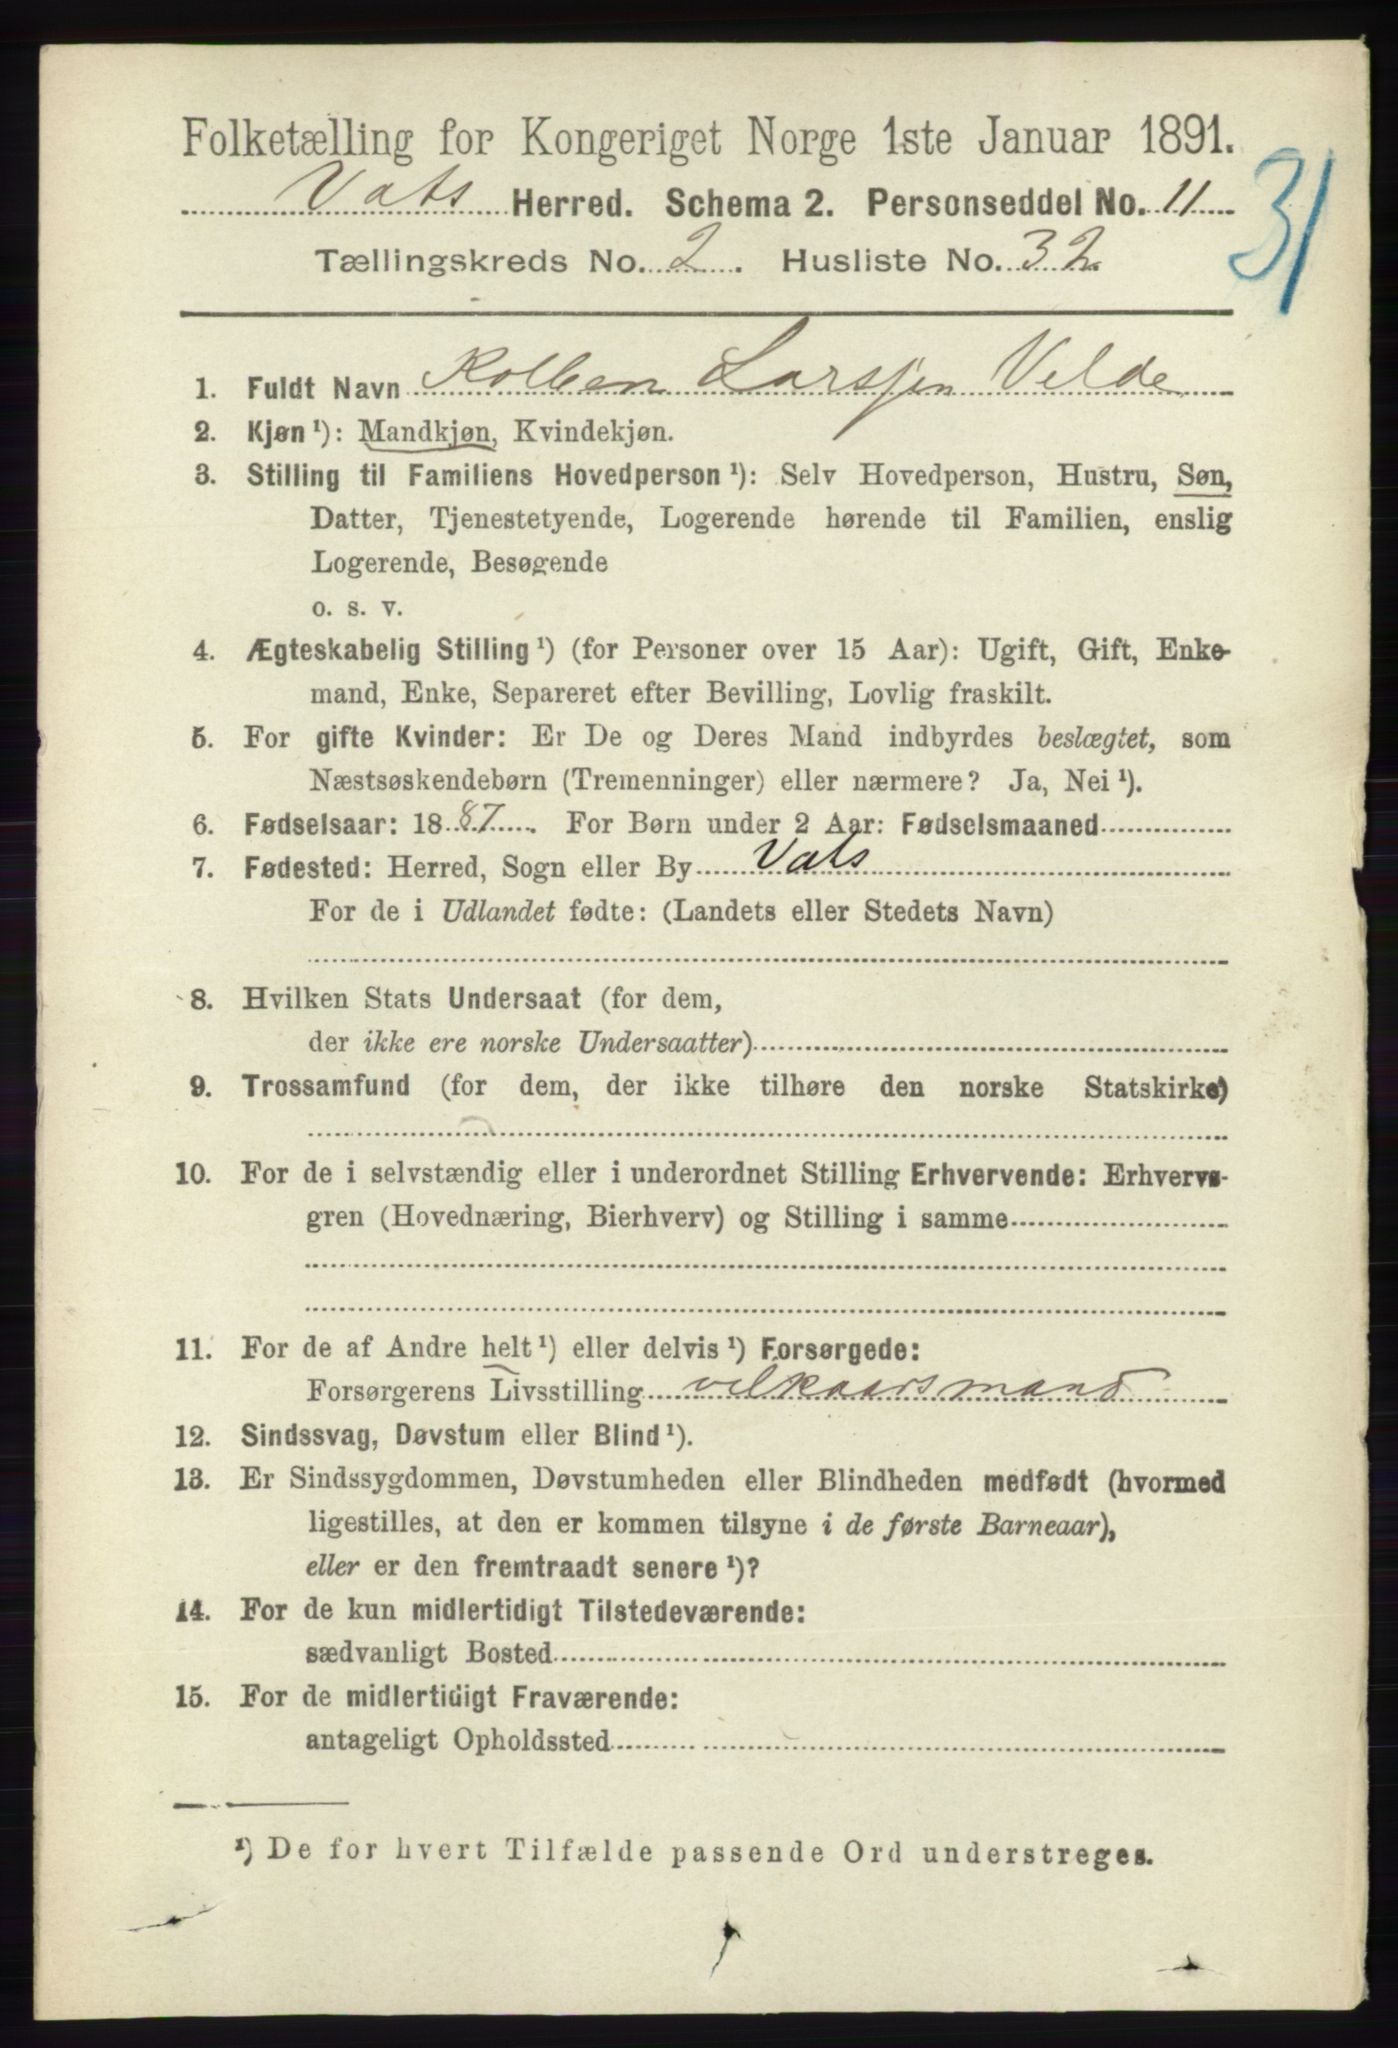 Folketælling for Kongeriget Norge 1ste Januar 1891.
Vats Herred. Schema 2. Personseddel No. 11
31
Tællingskreds No. 2. Husliste No. 32
1. Fuldt Navn Kolben Larsjen Velde
2. Kjøn ¹): Mandkjøn, Kvindekjøn.
3. Stilling til Familiens Hovedperson ¹): Selv Hovedperson, Hustru, Søn,
Datter, Tjenestetyende, Logerende hørende til Familien, enslig
Logerende, Besøgende
o. s. v.
4. Ægteskabelig Stilling ¹) (for Personer over 15 Aar): Ugift, Gift, Enke-
mand, Enke, Separeret efter Bevilling, Lovlig fraskilt.
5. For gifte Kvinder: Er De og Deres Mand indbyrdes beslægtet, som
Næstsøskendebørn (Tremenninger) eller nærmere? Ja, Nei ¹).
6. Fødselsaar: 1887. For Børn under 2 Aar: Fødselsmaaned
7. Fødested: Herred, Sogn eller By Vats
For de i Udlandet fødte: (Landets eller Stedets Navn)
8. Hvilken Stats Undersaat (for dem,
der ikke ere norske Undersaatter)
9. Trossamfund (for dem, der ikke tilhøre den norske Statskirke)
10. For de i selvstændig eller i underordnet Stilling Erhvervende: Erhvervs-
gren (Hovednæring, Bierhverv) og Stilling i samme
11. For de af Andre helt ¹) eller delvis ¹) Forsørgede:
Forsørgerens Livsstilling vilkaarsmand
12. Sindssvag, Døvstum eller Blind ¹).
13. Er Sindssygdommen, Døvstumheden eller Blindheden medfødt (hvormed
ligestilles, at den er kommen tilsyne i de første Barneaar),
eller er den fremtraadt senere ¹)?
14. For de kun midlertidigt Tilstedeværende:
sædvanligt Bosted
15. For de midlertidigt Fraværende:
antageligt Opholdssted
¹) De for hvert Tilfælde passende Ord understreges.